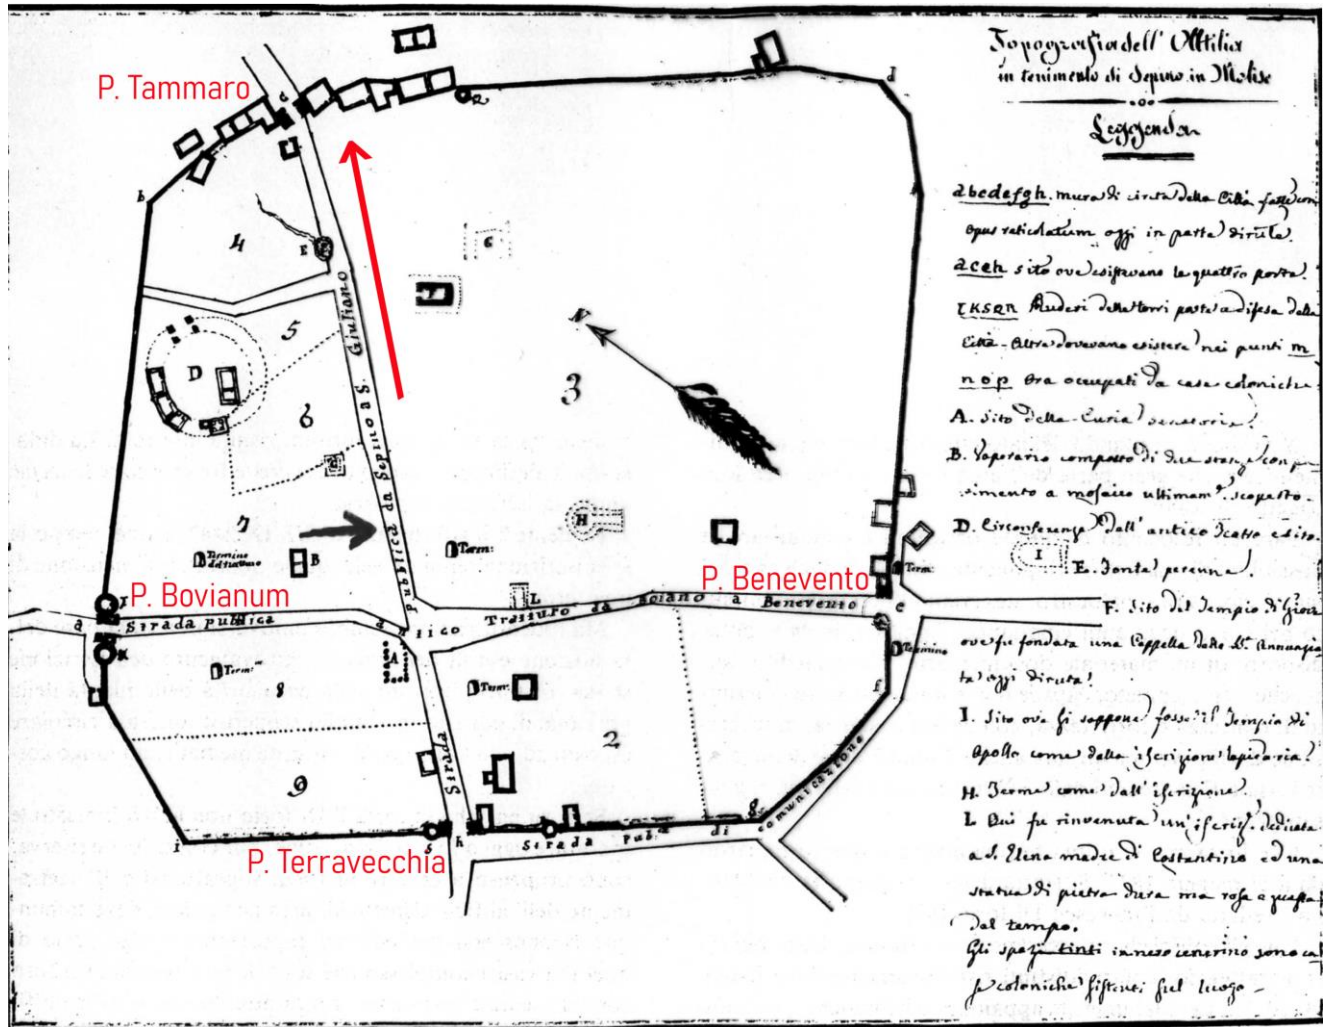 Topografia dell' Attilia
in tenimento di Sepino in Molise
Leggenda
abcdefgh. mura di cinta della Città fatte con
opus reticolatum oggi in parte dirute.
aceh sito ove esistevano le quattro porte.
IKSQR Ruderi delle torri poste a difesa della
Città. Altre dovevano esistere nei punti m
n o p ora occupati da case coloniche.
A. Sito della Curia senatoria.
B. composto di due stanze con pa-
vimento a mosaico ultimam. scoperto.
D. Circonferenza dell' antico Teatro
E. Fonte perenne
F. Sito del Tempio di Giove
ove fu fondata una Cappella detta S. Annunzia
ta oggi diruta.
I. Sito ove si suppone fosse il Tempio di
Apollo come dalle iscrizioni lapidarie.
H. Terme come dall' iscrizione.
L. Qui fu rinvenuta un' iscriz. dedicata
a S. Elena madre di Costantino ed una
statua di pietra
dal tempo.
Gli spazi tinti in nero sono ca
se coloniche esistenti sul luogo
P. Tammaro
P. Bovianum
P. Benevento
P. Terravecchia
a
b
c
d
e
f
g
h
i
s
I
K
A
B
C
D
E
F
G
H
I
L
N
2
3
4
5
6
7
8
9
Strada pubblica
antico Tratturo da Boiano a Benevento
Pubblica da Sepino a S. Giuliano
Strada
Strada pub.a di comunicazione
Termine
Term.
Term.
Term.
Termine